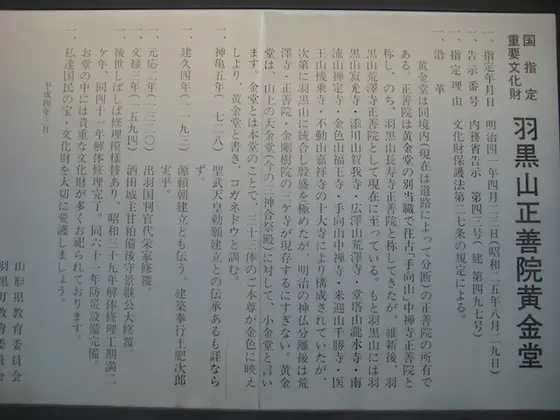 国指定
重要文化財
羽黒山正善院黄金堂
一、指定年月日 明治四一年四月二三日(昭和二五年八月二九日)
一、告示番号 内務省告示 第四三号(建 第四九七号)
一、指定理由 文化財保護法第二七条の規定による。
一、沿革
黄金堂は同境内(現在は道路によって分断)の正善院の所有で
ある。正善院は黄金堂の別当職で往古「手向山」中禅寺正善院と
称し、のち、羽黒山長寿寺正善院と称してきたが、維新後、羽
黒山荒澤寺正善院として現在に至っている。もと羽黒山には羽
黒山寂光寺・添川山賀我寺・広澤山荒澤寺・堂塔山瀧水寺・南
流山禅定寺・金色山福王寺・手向山中禅寺・来迎山千勝寺・医
王山機乗寺・不動山嘉祥寺の十大寺により構成されていたが、
次第に羽黒山に統合し殷盛を極めたが、明治の神仏分離後は荒
澤寺・正善院・金剛樹院の三ケ寺が現存するにすぎない。黄金
堂は、山上の大金堂(今の三神合祭殿)に対して、小金堂と言い
ます。金堂とは本堂のことで、三十三体のご本尊が金色に映え
しより、黄金堂と書き、コガネドウと訓む。
一、神亀五年(七二八) 聖武天皇勅願建立との伝承あるも詳なら
ず。
一、建久四年(一一九三) 源頼朝建立とも伝う。建築奉行土肥次郎
実平。
一、元応二年(一三二〇) 出羽国留守代官宋家修覆。
一、文禄三年(一五九四) 酒田城主甘粕備後守景継公大修覆。
後世しばしば修理模様替あり、昭和三十九年解体修理工期満二
ケ年、同四十一年解体修理完了。同六十一年防災設備完備。
お堂の中には貴重な文化財が多くお祀られております。
一、私達国民の宝・文化財を大切に愛護しましょう。
平成四年三月
山形県教育委員会
羽黒町教育委員会